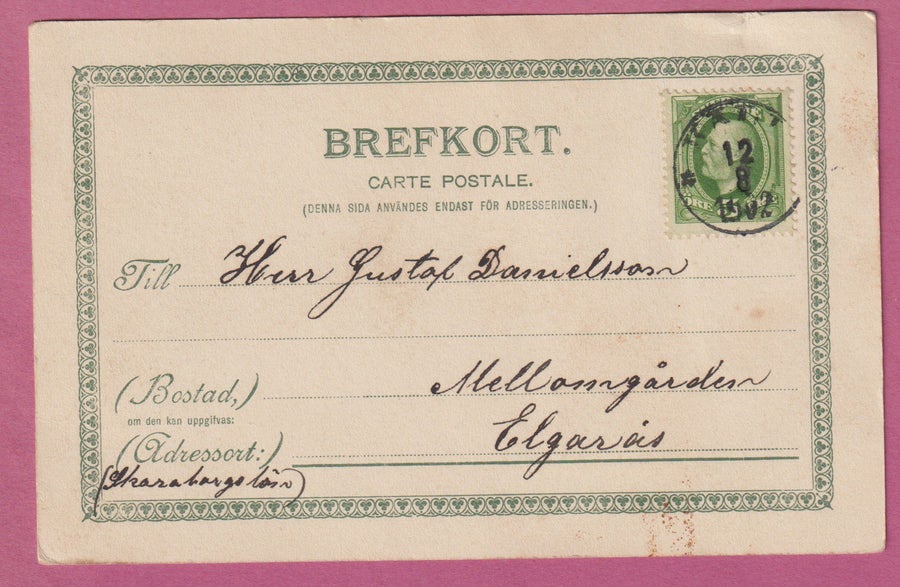 BREFKORT.
CARTE POSTALE.
(DENNA SIDA ANVÄNDES ENDAST FÖR ADRESSERINGEN.)
12
8
1902
Till Herr Gustaf Danielsson
(Bostad,) Mellomgården
om den kan uppgifvas:
(Adressort:) Elgarås
(Skaraborgslän)